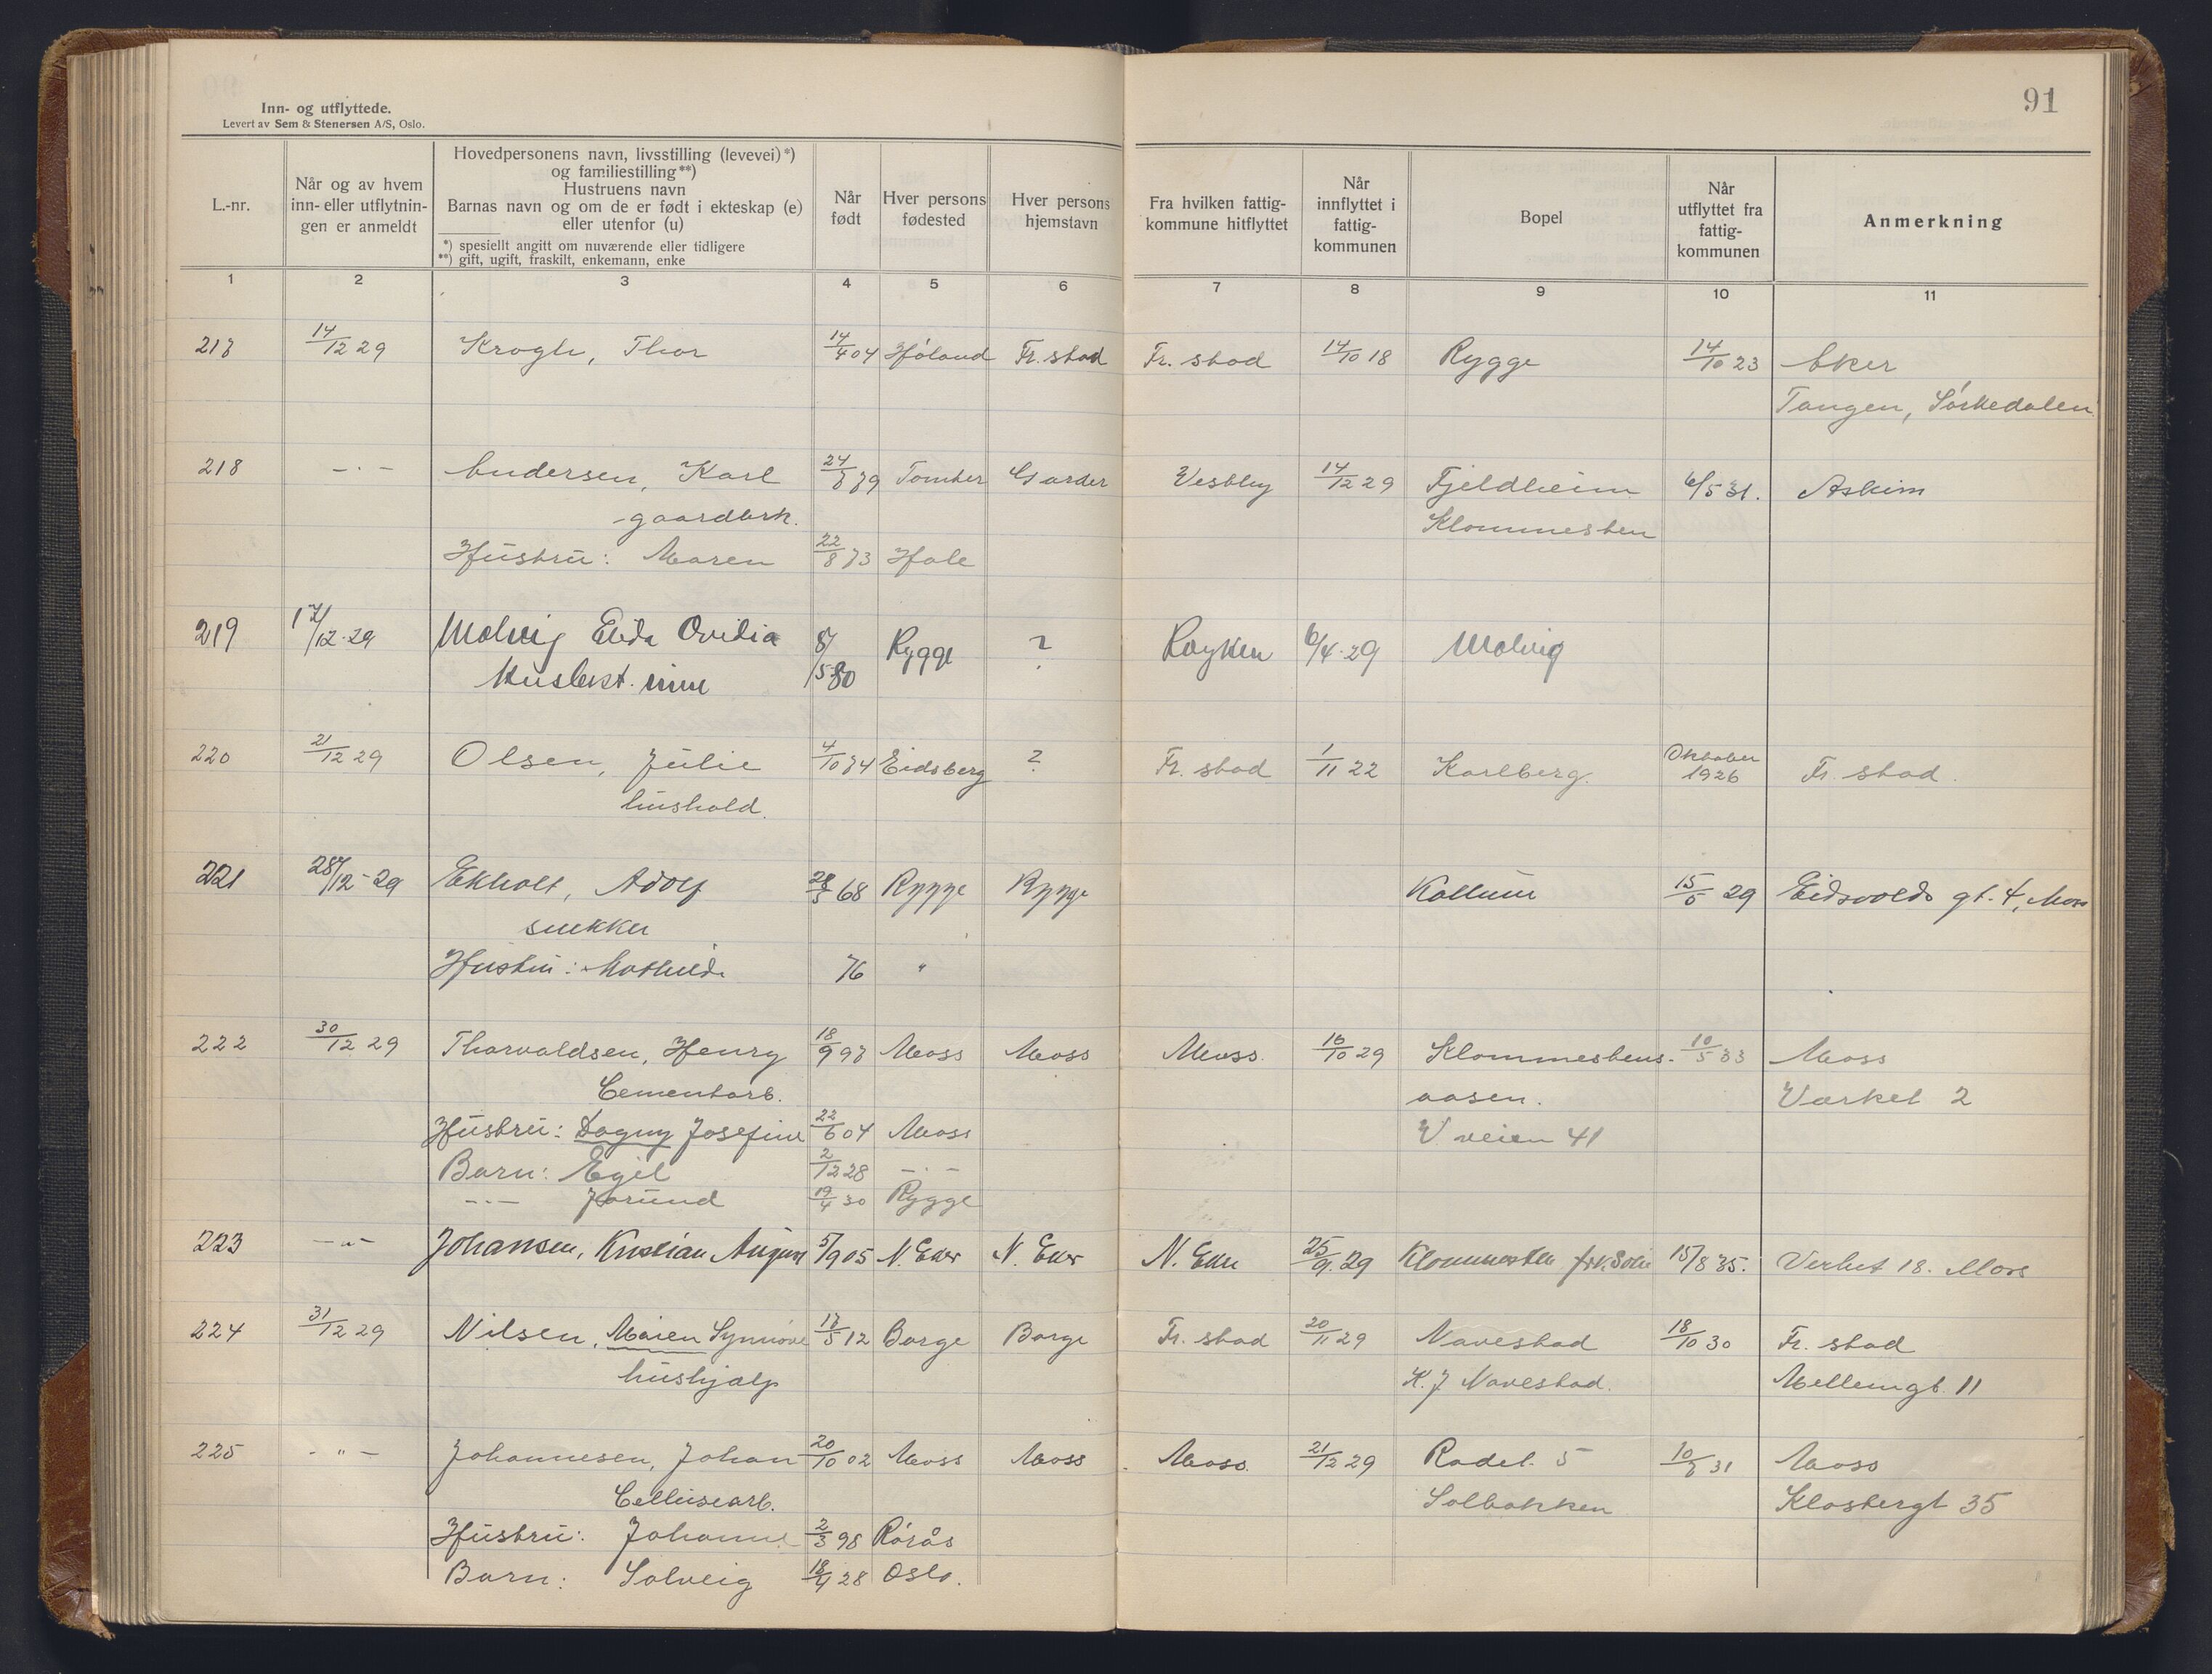 91
Inn- og utflyttede.
Levert av Sem & Stenersen A/S, Oslo.
L.-nr. | Når og av hvem inn- eller utflytnin-gen er anmeldt | Hovedpersonens navn, livsstilling (levevei) *) og familiestilling **) Hustruens navn Barnas navn og om de er født i ekteskap (e) eller utenfor (u) *) spesiellt angitt om nuværende eller tidligere **) gift, ugift, fraskilt, enkemann, enke | Når født | Hver persons fødested | Hver persons hjemstavn | Fra hvilken fattig-kommune hitflyttet | Når innflyttet i fattig-kommunen | Bopel | Når utflyttet fra fattig-kommunen | Anmerkning
1 2 3 4 5 6 7 8 9 10 11
217 14/12 29 Krogh, Thor 14/4 04 Høland Fr. stad Fr. stad 14/10 18 Rygge 14/10 23 Aker
Tangen, Sørkedalen
218 -·- Andersen, Karl 24/7 79 Tomter Garder Vestby 14/12 29 Fjeldheim 6/5 31. Askim
gaardbrk. Klommesten
Hustru: Maren 22/8 73 Hole
219 17/12·29 Molvig Elida Ovidia 8/5 80 Rygge ? Røyken 6/4·29 Molvig
220 21/12 29 Olsen, Julie 4/10 74 Eidsberg ? Fr. stad 1/11 22 Karlberg. Oktober 1926 Fr. stad.
hushold.
221 28/12-29 Ekholt, Adolf 28/3 68 Rygge Rygge Kallum 15/5 29 Eidsvolds gt. 4, Moss
snekker
Hustru: Mathilde 76 "
222 30/12 29 Thorvaldsen, Henry 18/9 97 Moss Moss Moss. 16/10 29 Klommestens- 10/5 33 Moss
Cementarb. aasen. Værket 2
Hustru: Dagny Josefine 22/6 04 Moss V veien 41
Barn: Egil 2/12 28 -·-
-·- Jorund 19/4 30 Rygge
223 -"- Johansen, Kristian August 5/9 05 N. Eker N. Eker N. Eker 25/9. 29 Klommesten 15/8 35. Verket 18. Moss
224 31/12 29 Nilsen, Maren Synnøve 17/5 12 Borge Borge Fr. stad 20/11 29 Navestad 18/10 30 Fr. stad
hushjælp K. J Navestad. Mellemgt. 11
225 -"- Johannesen, Johan 20/10 02 Moss Moss Moss. 21/12 29 Rødel. 5 10/7 31 Moss
Cellusearb. Solbakken Klostergt 35
Hustru: Johanne 2/3 98 Rørås
Barn: Solveig 18/4 28 Oslo.